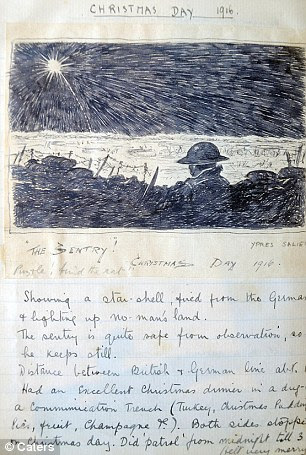 CHRISTMAS DAY 1916.
"THE SENTRY" YPRES SALIE
CHRISTMAS DAY 1916.
Puzzle: find the rat
Showing a star shell, fired from the German
& lighting up no-man's land.
The sentry is quite safe from observation, so
he keeps still.
Distance between British & German line abt.
Had an Excellent Christmas dinner in a dug-
a Communication Trench (Turkey, Christmas Pudding
Pies, fruit, Champagne &c). Both sides stopped
Christmas day. Did 'patrol' from midnight till 3
felt very merr
© Caters